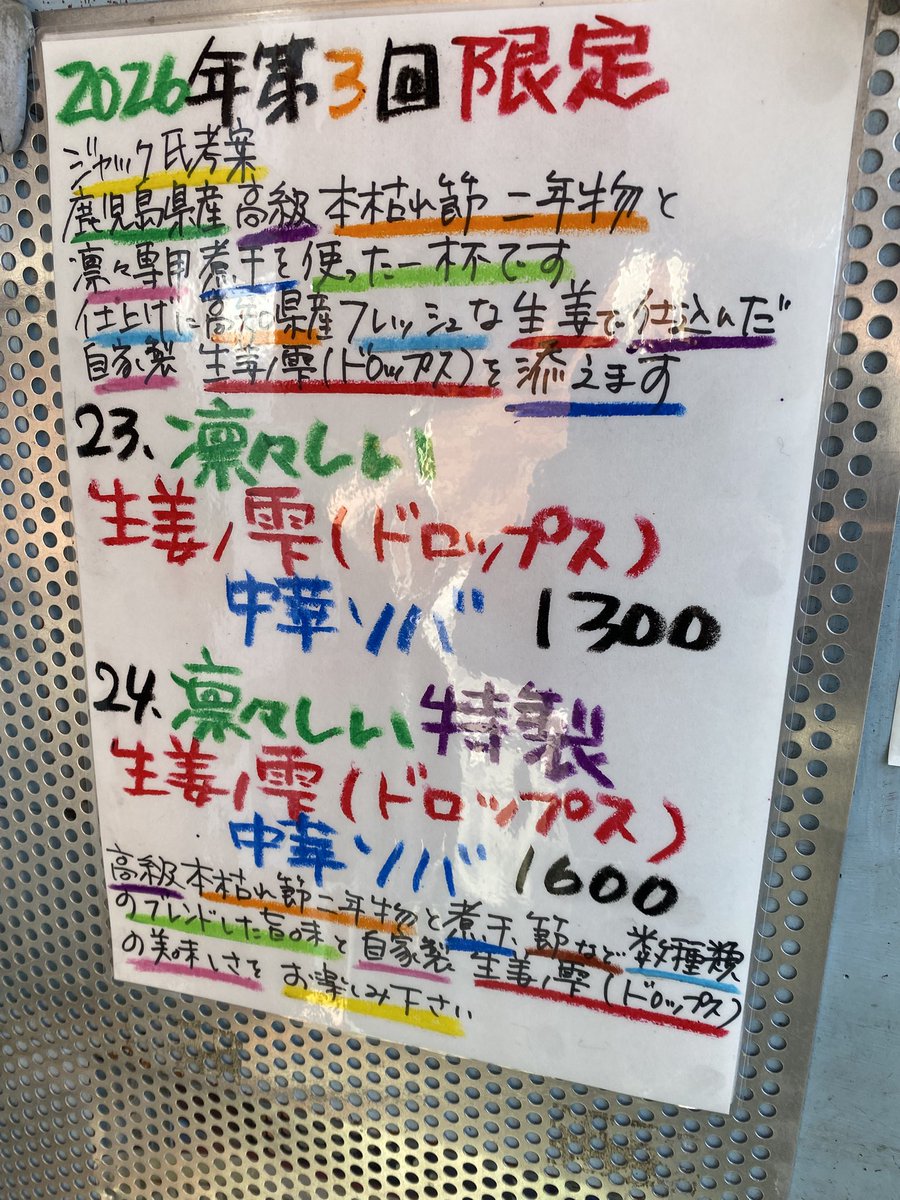 2026年第3回限定
ジャック氏考案
鹿児島県産高級本枯れ節二年物と
凛々専用煮干を使った一杯です
仕上げに高知県産フレッシュな生姜で仕込んだ
自家製生姜ノ雫(ドロップス)を添えます
23、凛々しい
生姜ノ雫(ドロップス)
中華ソバ 1300
24、凛々しい特製
生姜ノ雫(ドロップス)
中華ソバ 1600
高級本枯れ節二年物と煮干、節など数種類
のブレンドした旨味と自家製生姜ノ雫(ドロップス)
の美味しさをお楽しみ下さい